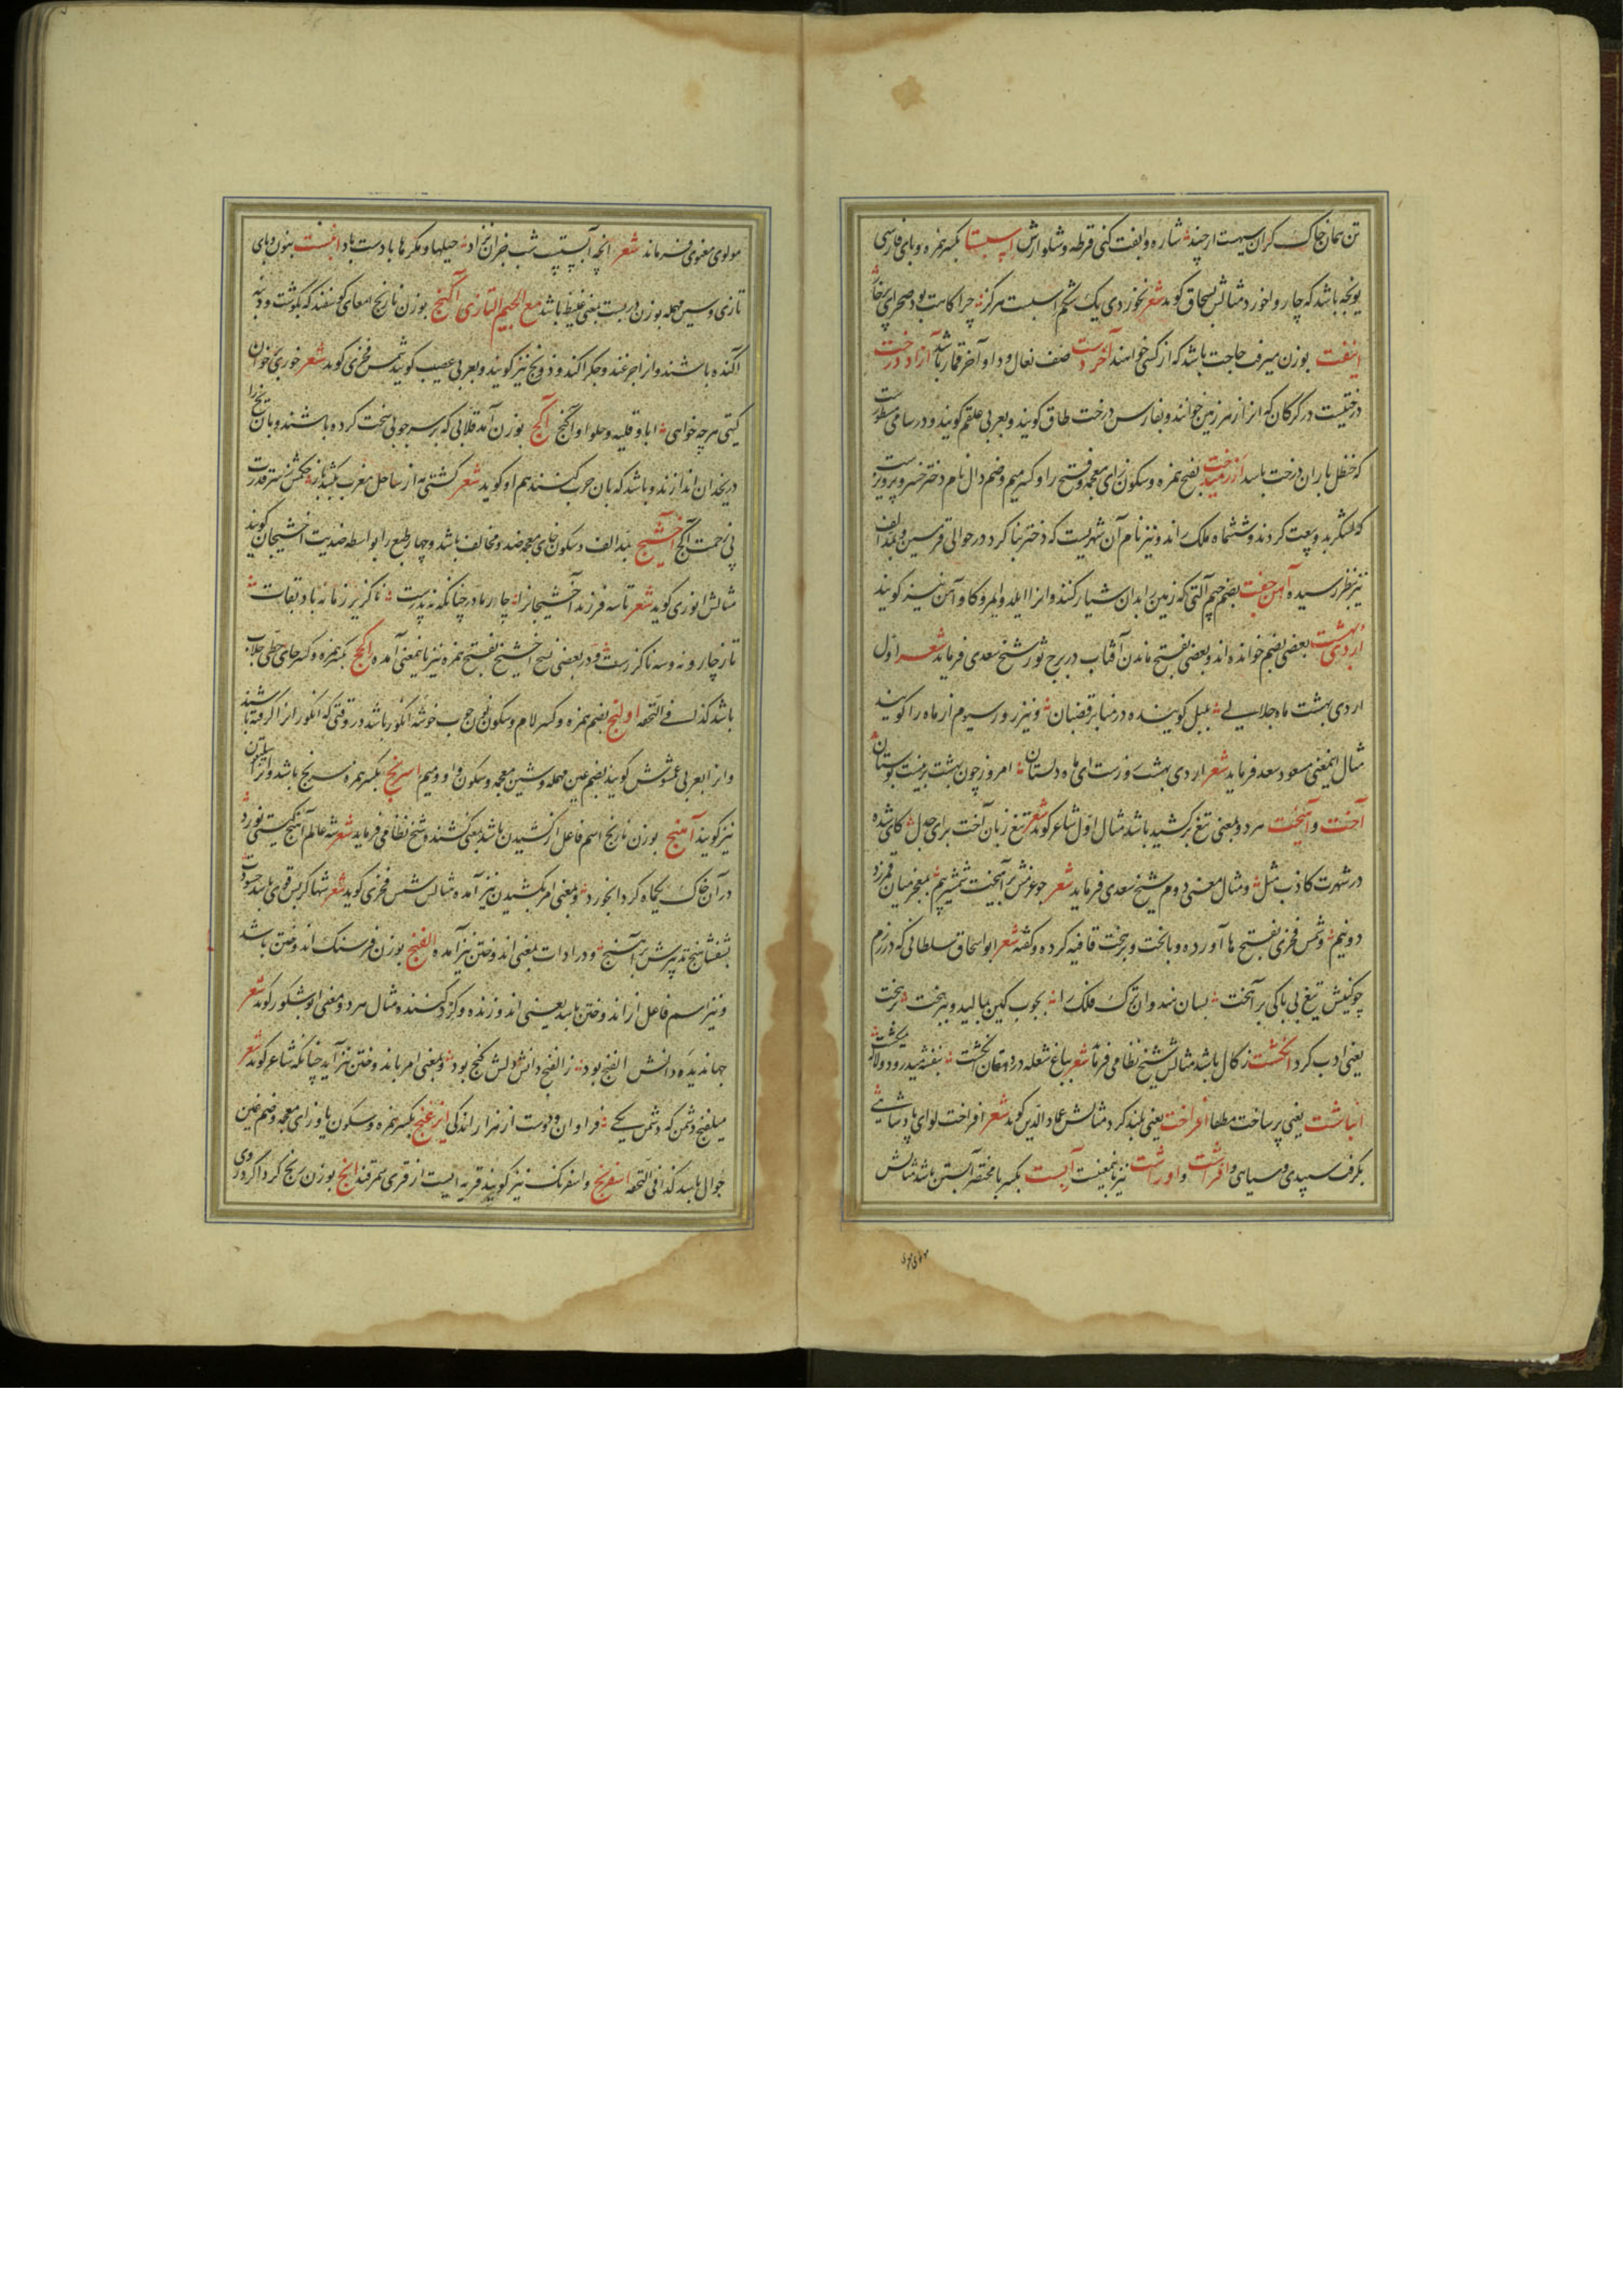 تن همان خاک کران سیهست ارچند شاره وابفت کنی قرطه و شلوارش اسپستا بکسر همزه و بای فارسی
یونجه باشد که چاروا خورد مثالش بسحاق کوید شعر نخوردی یک شکم اسبست هرگز چرا کاهت بود صحرای پرخار
بوزن میرفت حاجت باشد که از کسی خواهند آخردست صف نعال و داو آخر قمار باشد آزاددرخت
درختیست در کرکان که انرا زهرزمین خوانند و بفارس درخت طاق کویند و بعربی علقم کویند و در سامی مسطورست
که حنظل بار ان درخت باشد آزرمیدخت بفتح همزه و سکون زای معجمه و فتح را و کسر میم و ضم دال نام دختر خسرو پرویزست
که لشکر بدو بیعت کردند و ششماه ملک راند و نیز نام آن شهریست که دختر بنا کرد در حوالی قرمیسین و بمد الف
نیز بنظر رسیده آهن جفت بضم جیم آلتی که زمین را بدان شیار کنند و انرا و کاوآهن نیز کویند
اردیبهشت بعضی بضم خوانده اند و بعضی بفتح ماندن آفتاب در برج ثور شیخ سعدی فرماید شعر اول
اردی بهشت ماه جلالی بلبل کوینده در منابر قضبان و نیز روز سیوم از ماه را کویند
مثال اینمعنی مسعود سعد فرماید شعر اردی بهشت روزست ای ماه دلستان امروز چون بهشت برینست بوستان
آخت و آهیخت هر دو بمعنی تیغ برکشید باشد مثال اول شاعر کوید شعر تیغ زبان آخت برای جدل کای شده
در شهرت کاذب مثل و مثال معنی دوم شیخ سعدی فرماید شعر چو عزمش برآهیخت شمشیر بیم بمعجز میان قمر زد
دونیم و شمس فخری بفتح ها آورده و با بخت و پرخت قافیه کرده و کفته شعر ابواسحاق سلطانی که در رزم
چو کینش تیغ بی باکی برآهخت بسان بند وان ترک فلک را بچوب کین بمالید و بپرخت پرخت
یعنی ادب کرد انکشت زکال باشد مثالش شیخ نظامی فرماید شعر بباغ شعله در دهقان انکشت بنفشه میدرود و لاله میکشت
انباشت یعنی پر ساخت مطلقا افراخت یعنی بلند کرد مثالش عماد الدین کوید شعر افراخت لوای پادشاهی
بکرف سپیدی و سیاهی و افراشت و اوراشت نیز باینمعنیست آبست بکسر با مختصر آبستن باشد مثالش
مولوی معنوی
مولوی معنوی فرماید شعر انچه آبستست شب جز ان نزاد حیلها و مکرها بادست باد انبست بنون و بای
تازی و سین مهمله بوزن دربست بمعنی غلیظ باشد مع الجیم التازی آکنج بوزن نارنج امعای کوسفند که بکوشت و دنبه
آکنده باشند و انرا جرغند و جکرآکند و زونج نیز کویند و بعربی عصیب کویند شمس فخری کوید شعر خوری بر خوان
کیتی هرچه خواهی ابا و قلیه و حلوا و آکنج آکج بوزن آمد قلابی که بر سر چوبی سخت کرده باشند و بان یخ را
در یخدان اندازند و باشد که بان حرب کنند هم او کوید شعر کشتی از ساحل مغرب بکشد باز حکمش ز سر قدرت
بی زحمت آکج آخشیج بمد الف و سکون خای معجمه ضد و مخالف باشد و چهار طبع را بواسطه ضدیت اخشیجان کویند
مثالش انوری کوید شعر تا سه فرزند آخشیجانرا چار مادر چنانکه نه پدرست ناکزیر زمانه باد بقات
تا ز چار و نه و سه ناکزرست و در بعضی نسخ اخشیج بفتح همزه نیز باینمعنی آمده اکج بکسر همزه و کسر حای حطی جلاب
باشد کذا فی التحفه اولنج بضم همزه و کسر لام و سکون نون و جیم خوشه انکور باشد در وقتی که انکور انرا کرفته باشند
و انرا بعربی عمشوش کویند بضم عین مهمله و شین معجمه و سکون واو و میم اسرنج بکسر همزه سرنج باشد و انرا سلیقون
نیز کویند آهنج بوزن نارنج اسم فاعل از کشیدن باشد یعنی کشنده شیخ نظامی فرماید شعر شه عالم آهنج کیتی نورد
در آن خاک یکماه کرد آبخورد و بمعنی امر بکشیدن نیز آمده مثالش شمس فخری کوید شعر شها کر بس قوی باشد حسودت
تفشاهنج تدبیرش برآهنج و در ادات بمعنی اندوختن نیز آمده الفنج بوزن فرسنک اندوختن باشد
و نیز اسم فاعل از اندوختن باشد یعنی اندوزنده و کردکننده مثال هر دو معنی ابو شکور کوید شعر
جهاندیده دانش الفنج بود ز الفنج دانش دلش کنج بود و بمعنی امر باندوختن نیز آید چنانکه شاعر کوید شعر
میلفنج دشمن که دشمن یکی فراوان و دوست از هزار اندکی ایزغنج بکسر همزه و سکون یا و زای معجمه و ضم غین
جوال باشد کذا فی التحفه اسفرنج و اسفرنک نیز کویند قریه ایست از قرای سمرقند انج بوزن رنج کرداکرد روی